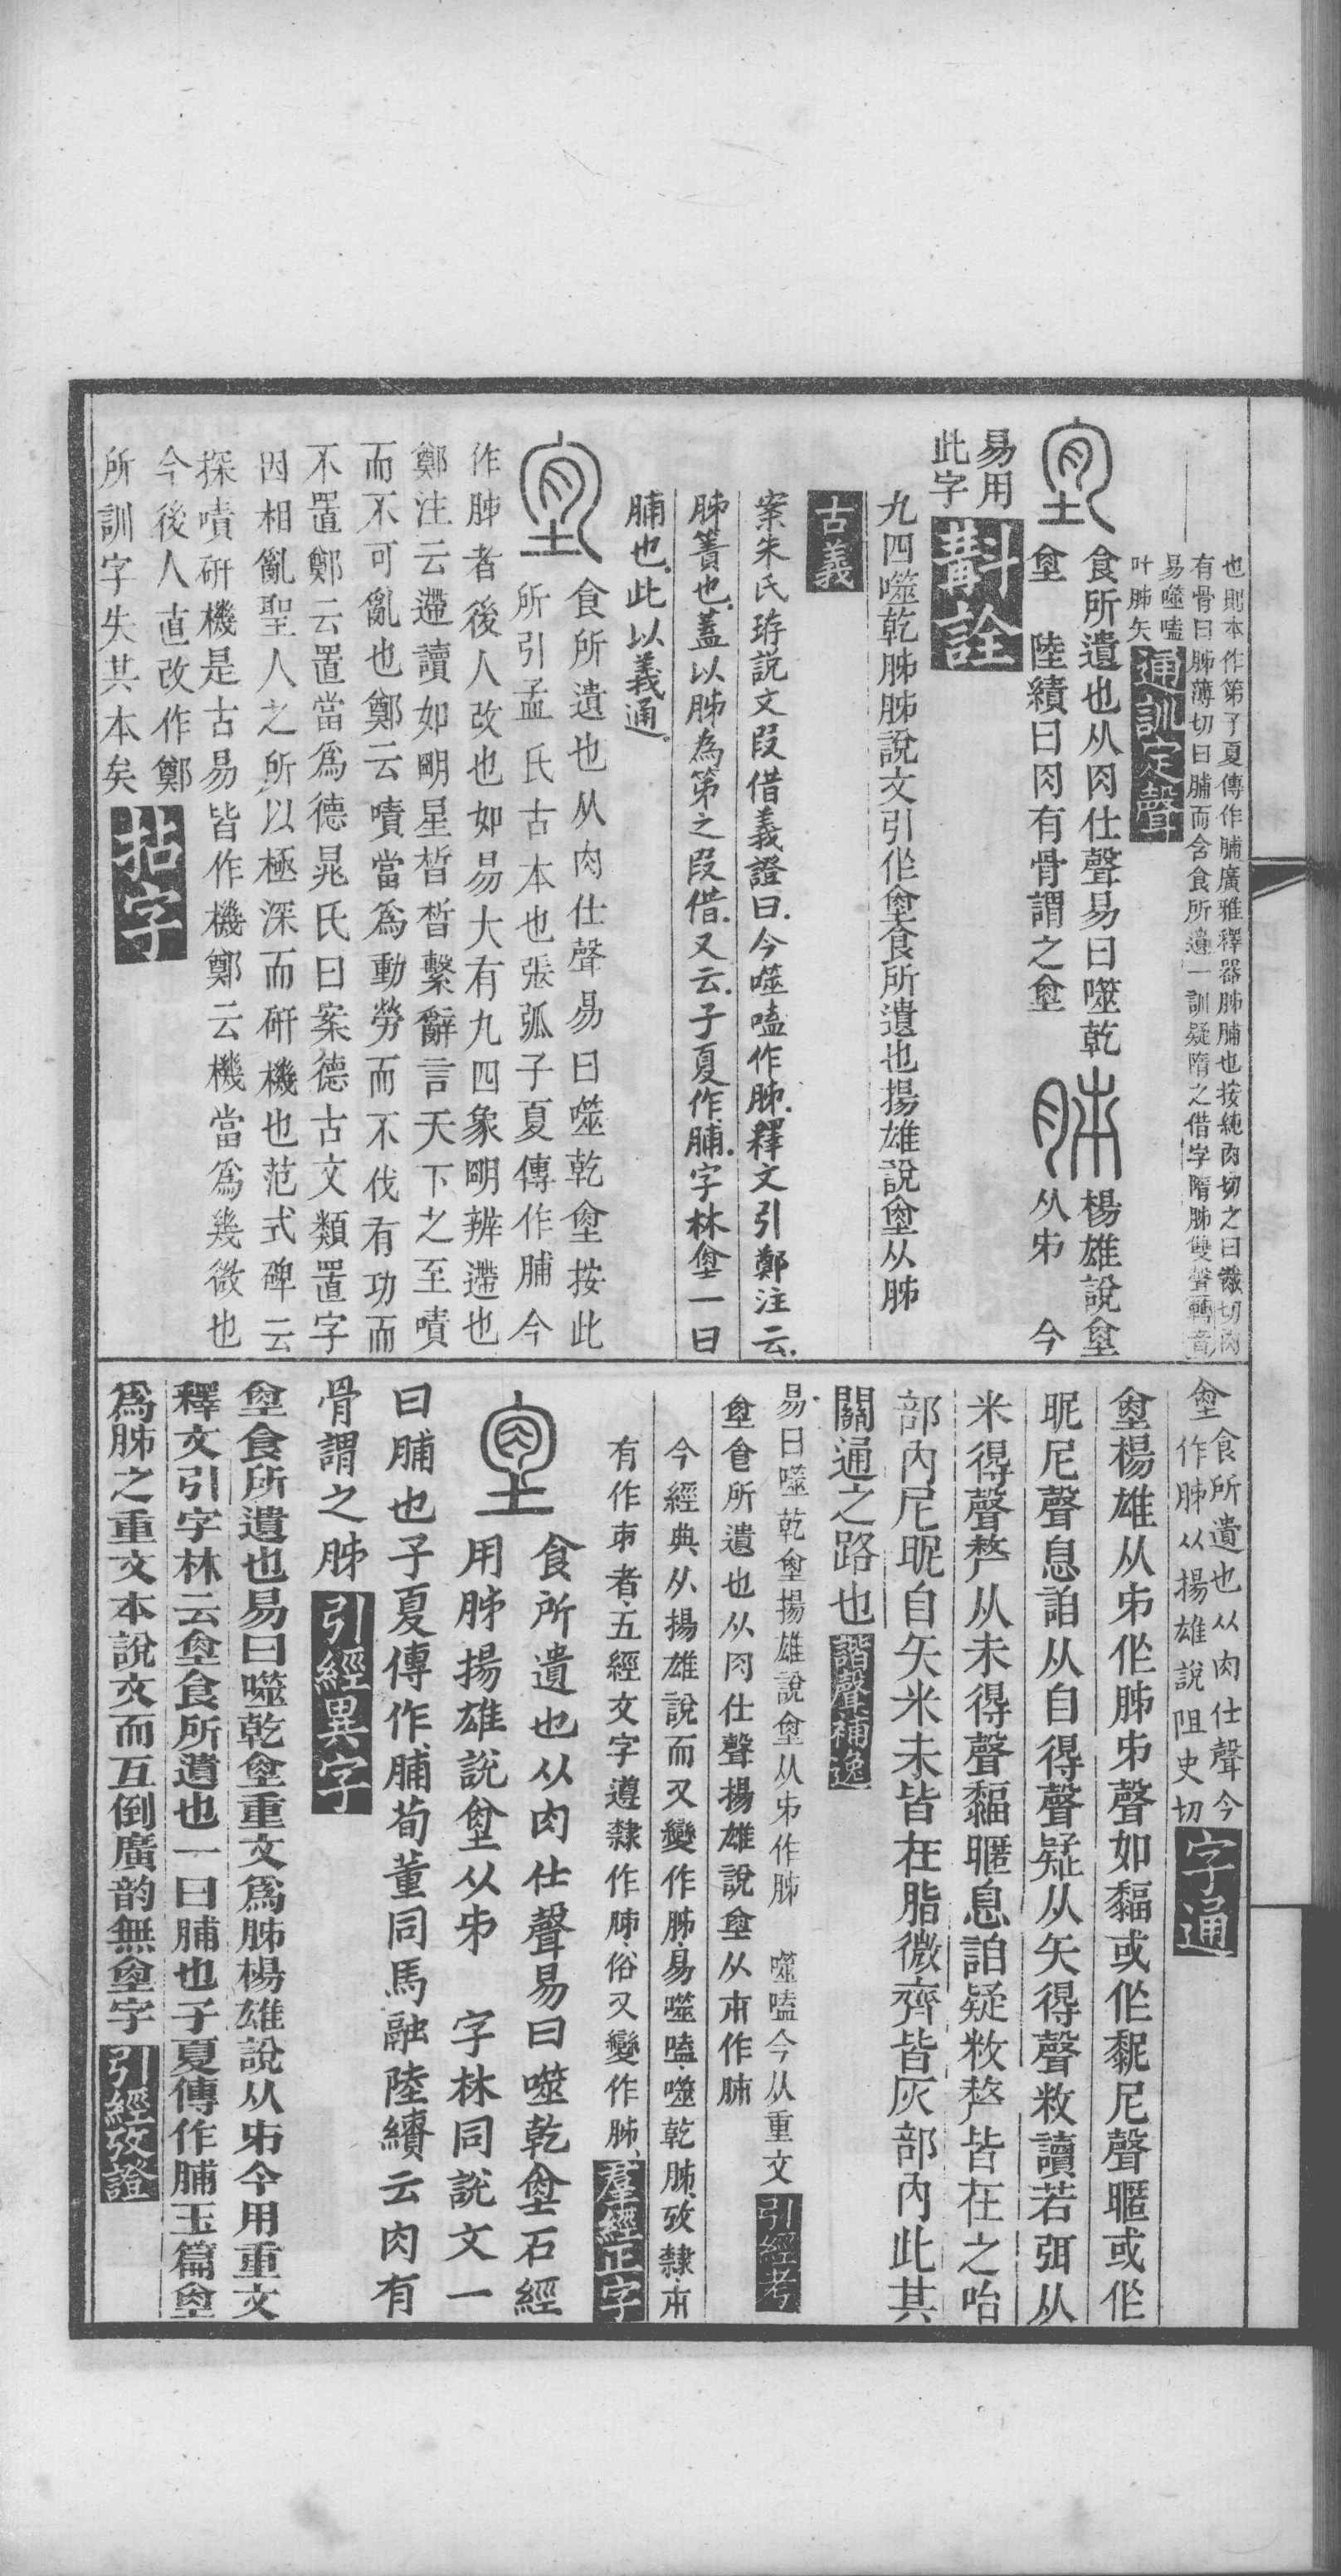 也則本作第子夏傳作脯廣雅釋器胏脯也按純肉切之曰胾切肉
有骨曰胏薄切曰脯而含食所遺一訓疑隋之借字隋胏雙聲轉音
易噬嗑
叶胏矢
通訓定聲
食所遺也从肉仕聲易曰噬乾
𦞤 陸績曰肉有骨謂之𦞤
楊雄說𦞤
从𠂔 今
易用
此字
斠詮
九四噬乾胏胏說文引作𦞤食所遺也揚雄說𦞤从胏
古義
案朱氏珔說文叚借義證曰今噬嗑作胏釋文引鄭注云
胏簀也蓋以胏為第之叚借又云子夏作脯字林𦞤一曰
脯也此以義通
食所遺也从肉仕聲易曰噬乾𦞤按此
所引孟氏古本也張弧子夏傳作脯今
作胏者後人改也如易大有九四象明辨遰也
鄭注云遰讀如明星晢晢繫辭言天下之至嘖
而不可亂也鄭云嘖當爲動勞而不伐有功而
不置鄭云置當爲德晁氏曰案德古文類置字
因相亂聖人之所以極深而研機也范式碑云
探嘖研機是古易皆作機鄭云機當爲幾微也
今後人直改作鄭
所訓字失其本矣
拈字
𦞤食所遺也从肉仕聲今
作胏从揚雄說阻史切
字通
𦞤楊雄从𠂔作胏𠂔聲如䵑或作䵒尼聲暱或作
昵尼聲息詯从自得聲疑从矢得聲敉讀若弭从
米得聲嫠从未得聲䵑暱息詯疑敉嫠皆在之咍
部內尼昵自矢米未皆在脂微齊皆灰部內此其
關通之路也
諧聲補逸
易曰噬乾𦞤揚雄說𦞤从𠂔作胏 噬嗑今从重文
引經考
𦞤食所遺也从肉仕聲揚雄說𦞤从𠂔作胏
今經典从揚雄說而又變作胏易噬嗑噬乾胏攷隸𠂔
有作朿者五經文字遵隸作胏俗又變作胏
羣經正字
食所遺也从肉仕聲易曰噬乾𦞤石經
用胏揚雄說𦞤从𠂔 字林同說文一
曰脯也子夏傳作脯荀董同馬融陸績云肉有
骨謂之胏
引經異字
𦞤食所遺也易曰噬乾𦞤重文爲胏楊雄說从𠂔今用重文
釋文引字林云𦞤食所遺也一曰脯也子夏傳作脯玉篇𦞤
爲胏之重文本說文而互倒廣韵無𦞤字
引經攷證